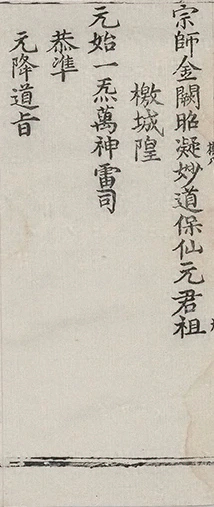 宗師金闕昭凝妙道保仙元君祖
檄城隍
元始一炁萬神雷司
恭準
元降道旨